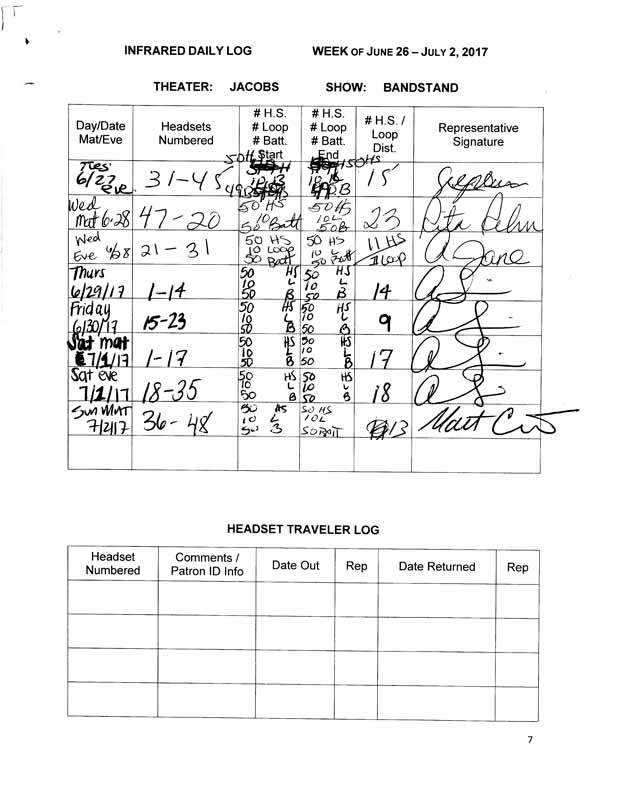 INFRARED DAILY LOG WEEK OF JUNE 26 – JULY 2, 2017
THEATER: JACOBS SHOW: BANDSTAND
Day/Date Mat/Eve
Headsets Numbered
# H.S. # Loop # Batt. Start
# H.S. # Loop # Batt. End
# H.S. / Loop Dist.
Representative Signature
Tues 6/27 eve 31-45 50H 50HS 15
Wed Mat 6-28 47-20 50 HS 10 50 Batt 50 HS 10L 50B 23 Rita
Wed Eve 6/28 21-31 50 HS 10 LOOP 50 Batt 50 HS 10 L 50 Batt 11 HS 1 Loop A Jane
Thurs 6/29/17 1-14 50 HS 10 L 50 B 50 HS 10 L 50 B 14
Friday 6/30/17 15-23 50 HS 10 L 50 B 50 HS 10 L 50 B 9
Sat mat 7/1/17 1-17 50 HS 10 L 50 B 50 HS 10 L 50 B 17
Sat eve 7/1/17 18-35 50 HS 10 L 50 B 50 HS 10 L 50 B 18
Sun MAT 7/2/17 36-48 50 HS 10 L 50 B 50 HS 10L 50 BATT 13 Matt
HEADSET TRAVELER LOG
Headset Numbered
Comments / Patron ID Info
Date Out
Rep
Date Returned
Rep
7